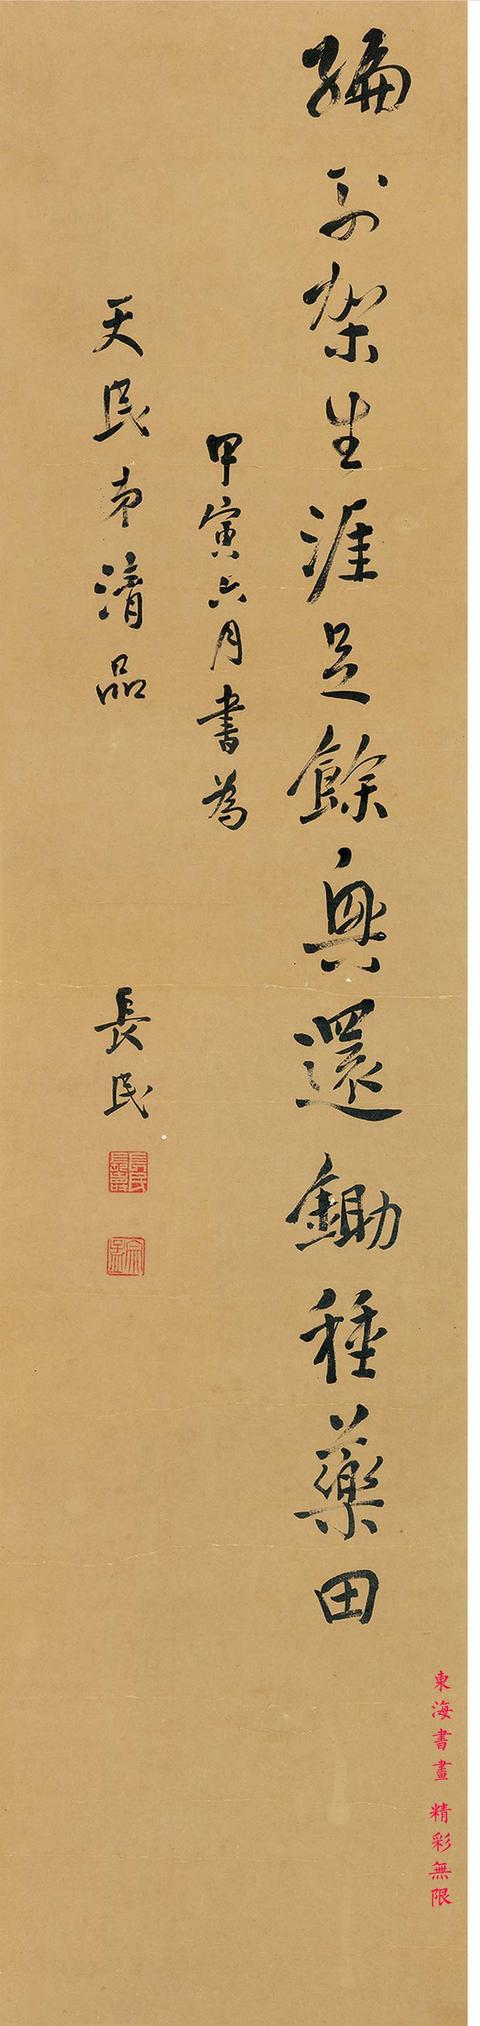 編列架生涯足餘興還鋤種藥田
甲寅六月書為
天民弟清品
長民
長民長壽
宗孟
東海書畫 精彩無限